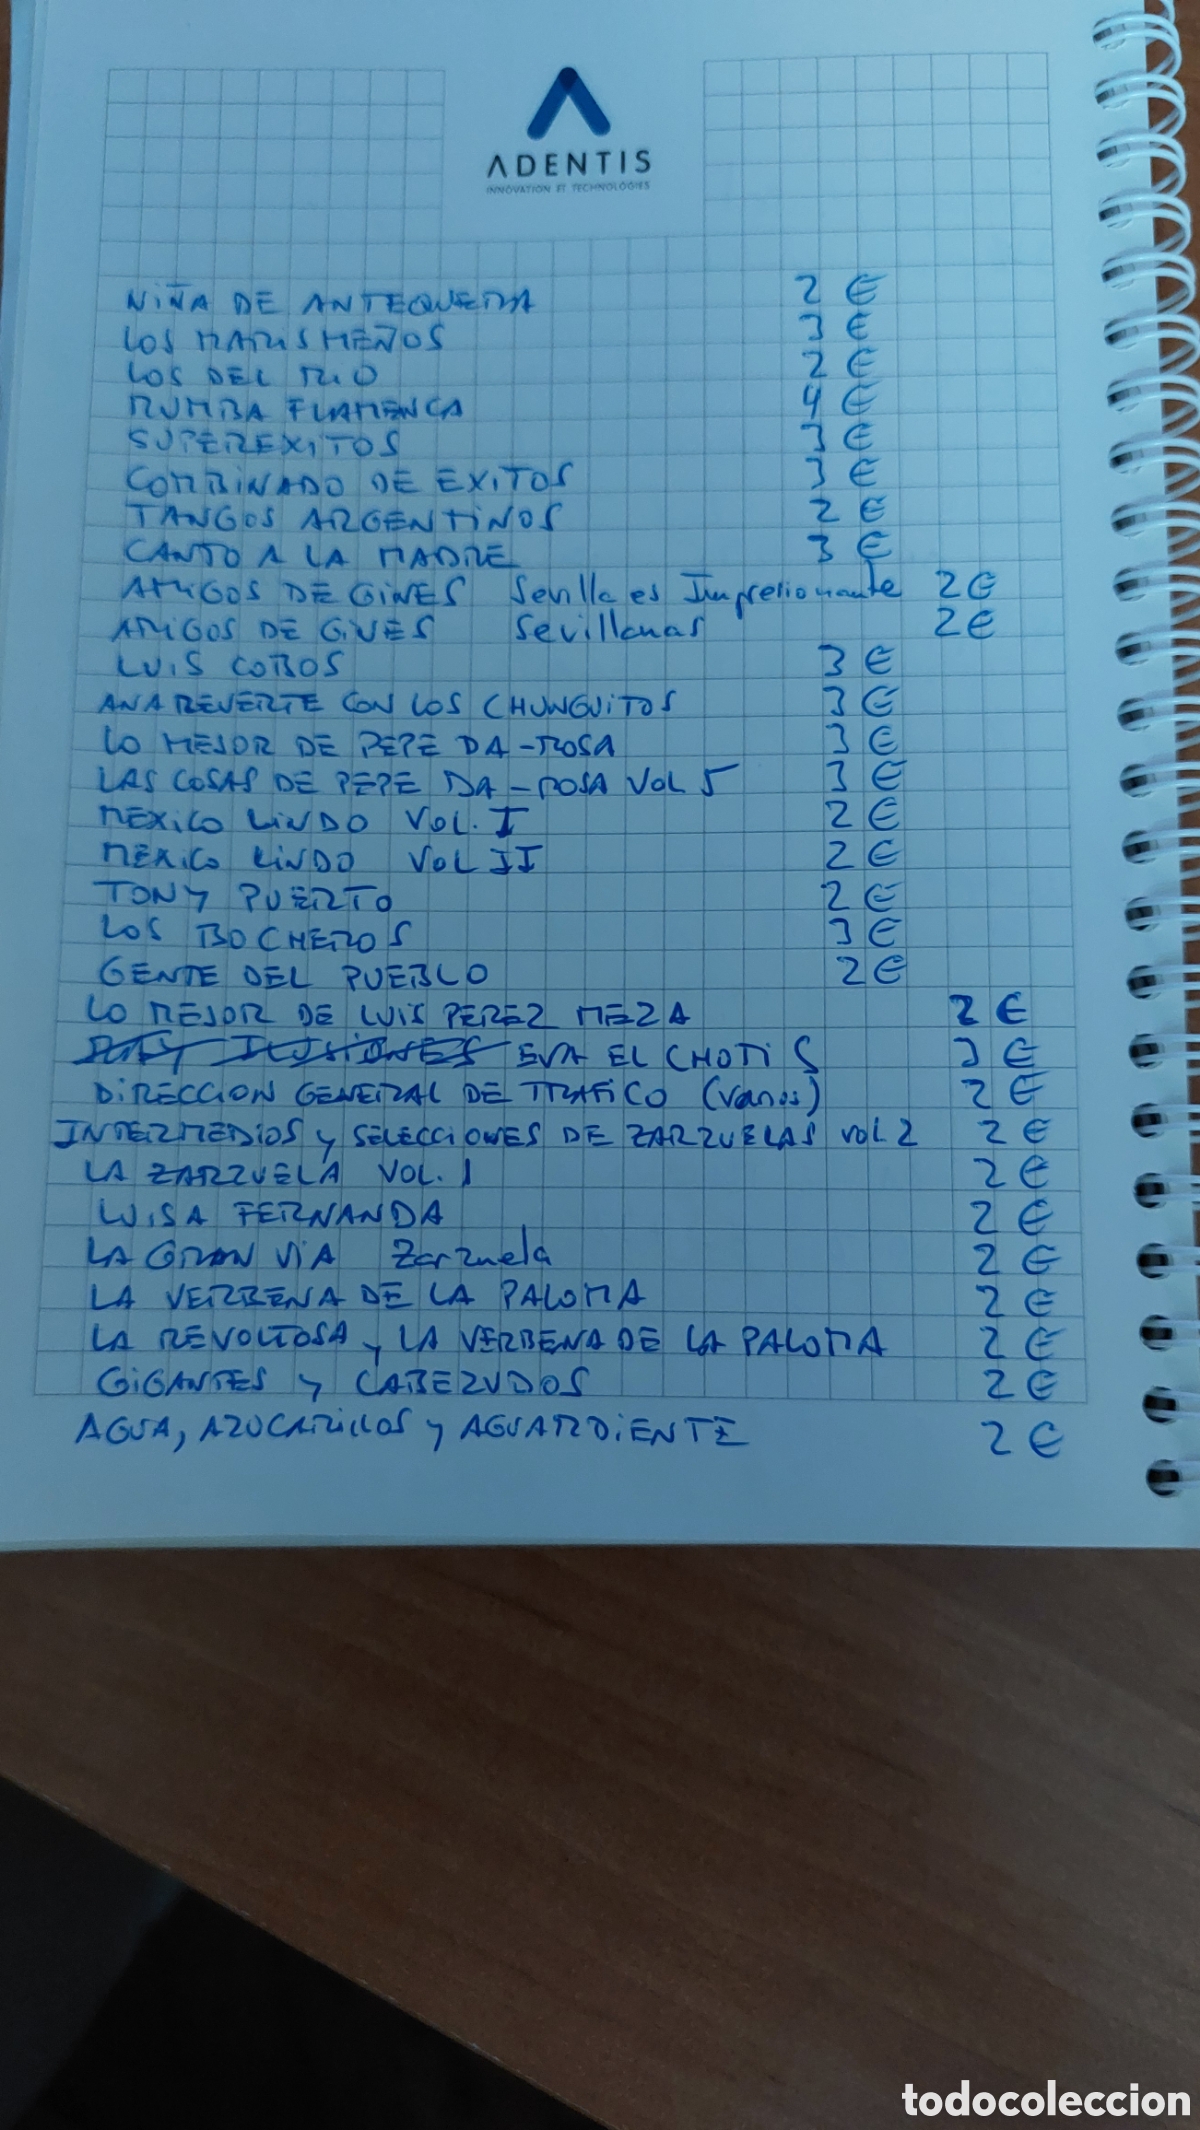 ADENTIS
INNOVATION ET TECHNOLOGIES
NIÑA DE ANTEQUERA 2 €
LOS MARISMEÑOS 3 €
LOS DEL RIO 2 €
RUMBA FLAMENCA 4 €
SUPEREXITOS 3 €
COMBINADO DE EXITOS 3 €
TANGOS ARGENTINOS 2 €
CANTO A LA MADRE 3 €
AMIGOS DE GINES Sevilla es Impresionante 2 €
AMIGOS DE GINES Sevillanas 2 €
LUIS COBOS 3 €
ANA REVERTE CON LOS CHUNGUITOS 3 €
LO MEJOR DE PEPE DA-ROSA 3 €
LAS COSAS DE PEPE DA-ROSA VOL 5 3 €
MEXICO LINDO VOL. I 2 €
MEXICO LINDO VOL II 2 €
TONY PUERTO 2 €
LOS BOCHEROS 3 €
GENTE DEL PUEBLO 2 €
LO MEJOR DE LUIS PEREZ MEZA 2 €
ILUSIONES EVA EL CHOTIS 3 €
DIRECCION GENERAL DE TRAFICO (Varios) 2 €
INTERMEDIOS y SELECCIONES DE ZARZUELAS VOL 2 2 €
LA ZARZUELA VOL. 1 2 €
LUISA FERNANDA 2 €
LA GRAN VIA Zarzuela 2 €
LA VERBENA DE LA PALOMA 2 €
LA REVOLTOSA y LA VERBENA DE LA PALOMA 2 €
GIGANTES y CABEZUDOS 2 €
AGUA, AZUCARILLOS y AGUARDIENTE 2 €
todocoleccion